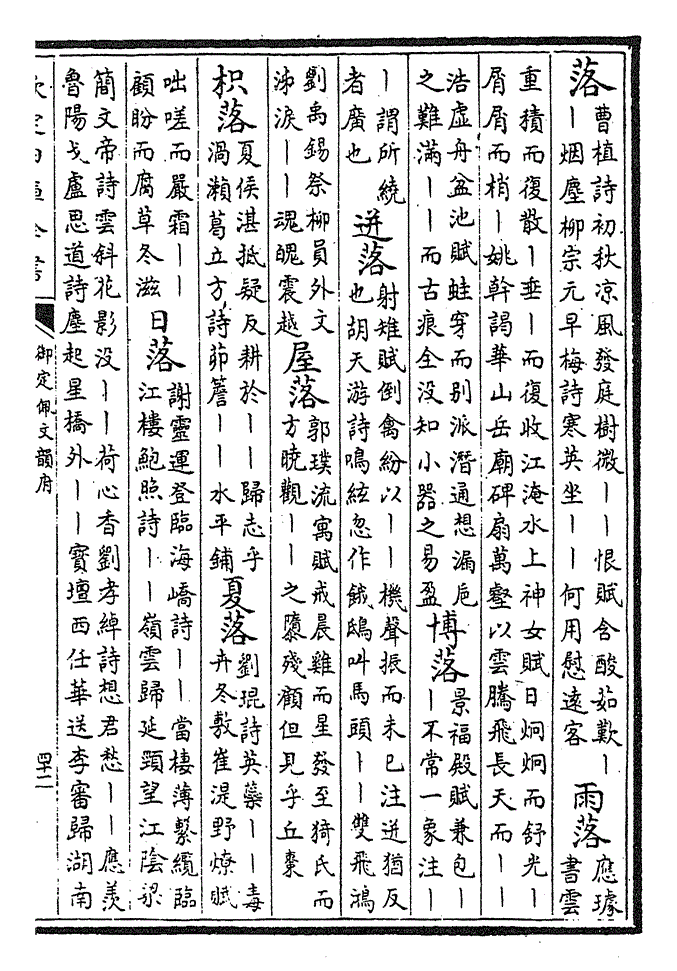 落 曹植詩初秋凉風發庭樹微｜｜恨賦含酸茹歎｜
｜烟塵柳宗元早梅詩寒英坐｜｜何用慰遠客
雨落 應璩
書雲
重積而復散｜垂｜而復收江淹水上神女賦日炯炯而舒光｜
屑屑而梢｜姚幹謁華山岳廟碑扇萬壑以雲騰飛長天而｜｜
浩虛舟盆池賦蛙穿而别派潛通想漏巵
之難滿｜｜而古痕全没知小器之易盈
博落 景福殿賦兼包｜
｜不常一象注｜
｜謂所繞
者廣也
迸落 射雉賦倒禽紛以｜｜機聲振而未已注迸猶反
也胡天游詩鳴絃忽作餓鴟叫馬頭｜｜雙飛鴻
劉禹錫祭柳員外文
涕淚｜｜魂魄震越
屋落 郭璞流寓賦戒晨雞而星發至猗氏而
方曉觀｜｜之隳殘顧但見乎丘棗
枳落 夏侯湛抵疑反耕於｜｜歸志乎
渦瀨葛立方詩茆簷｜｜水平鋪
夏落 劉琨詩英蘂｜｜毒
卉冬敷崔湜野燎賦
咄嗟而嚴霜｜｜
顧盼而腐草冬滋
日落 謝靈運登臨海嶠詩｜｜當棲薄繫纜臨
江樓鮑照詩｜｜嶺雲歸延頸望江陰梁
簡文帝詩雲斜花影没｜｜荷心香劉孝綽詩想君愁｜｜應羨
魯陽戈盧思道詩塵起星橋外｜｜寶壇西任華送李審歸湖南
欽定四庫全書
御定佩文韻府
四十二